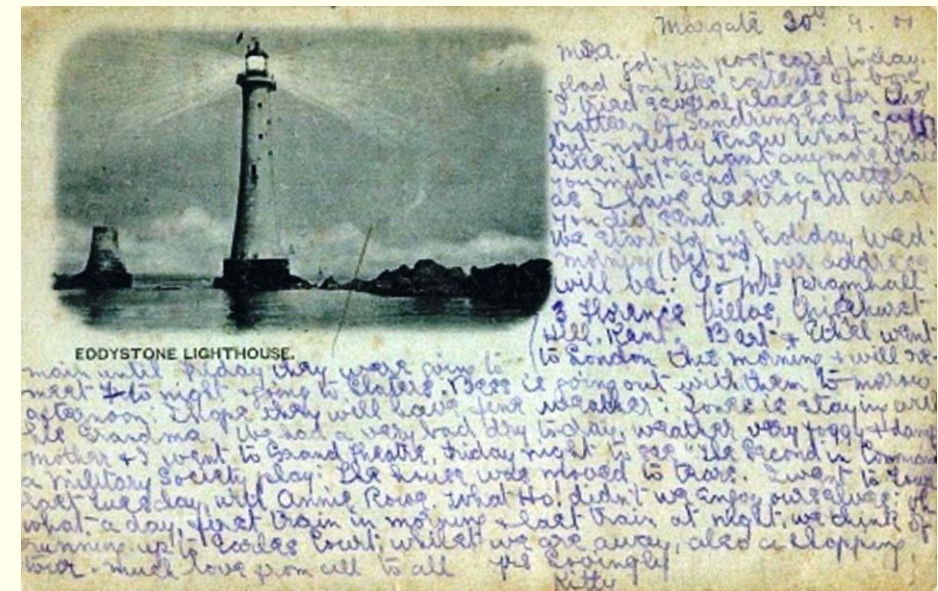 Margate 30th 9. 01
M.D.A.
got your post card to-day.
glad you like contents of box
I tried several places for the
pattern of Sandringham
but nobody knew what it was
like; if you want any more
you must send me a pattern
as I have destroyed what
you did send
we start for our holiday Wed:
morning (Oct 2nd) our address
will be: C/o Mrs Bramhall
3 Florence Villas, Chislehurst
Hill. Kent. Bert & Ethel went
to London this morning & will re-
EDDYSTONE LIGHTHOUSE.
main until Friday they were going to
meet to night & going to Bess is going out with them to-morrow
afternoon. I hope they will have fine weather: is staying with
his Grandma. We had a very bad day to-day, weather very foggy & damp
Mother & I went to Grand Theatre, Friday night to see "The Second in Command
a Military Society play: the house was moved to tears. I went to
last Tuesday, with Annie Rowe. What Ho! didn't we enjoy ourselves;
what a day, first train in morning & last train at night, we think of
running up to Earles Court; whilst we are away, also a shopping
tour. Much love from all to all yrs lovingly
Kitty